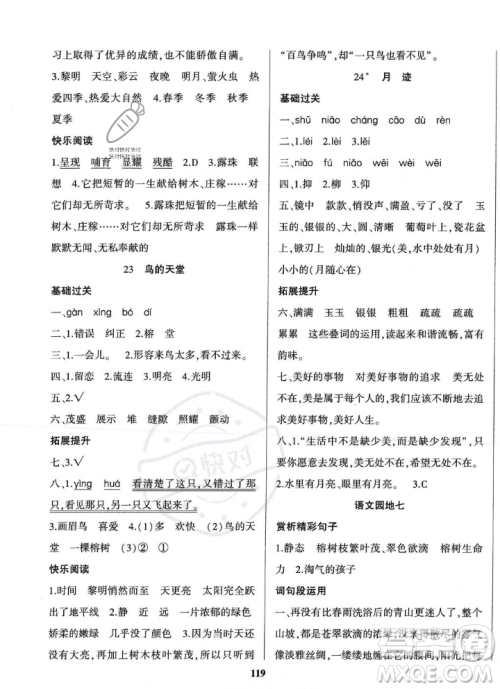 习上取得了优异的成绩,也不能骄傲自满。
3.黎明 天空、彩云 夜晚 明月、萤火虫 热
爱四季……大自然 2.春季 冬季 秋季
夏季
快乐阅读
1.呈现 哺育 显耀 残酷 2.D 露珠 联
想 3.它把短暂的一生献给树木、庄稼……对
它们却无所苛求。 4.它把短暂的一生献给
树木、庄稼……对它们却无所苛求 露珠一样
默默无闻、无私奉献的
23 鸟的天堂
基础过关
一、gàn xìng bó dí
二、1.错误 纠正 2.榕 堂
三、1.一会儿。 2.形容鸟太多,看不过来。
四、1.留恋 2.流连 3.明亮 4.光明
五、2.√
六、茂盛 展示 堆 缝隙 照耀 颤动
拓展提升
七、3.√
八、1.yìng huá 看清楚了这只,又错过了那
只,看见了那只,另一只又飞起来了。
3.画眉鸟 喜爱 4.(1)多 (2)小鸟的
天堂 一棵榕树 (3)√
快乐阅读
1.时间 黎明悄然而至 天更亮 太阳完全跃出
了地平线 2.静 近 远 一片浓郁的绿色
娇柔的嫩绿 3.动态
4.因为上面的树木枝叶繁茂,所以只能听到
119
“百鸟争鸣”,却“一只鸟也看不见”。
24* 月 迹
基础过关
一、shū niǎo cháng cāo dù rèn
二、1.léi 2.lěi
三、1.niǎo
四、1.抑 2.柳 3.仰
五、镜中 款款、悄没声儿、满盈、亏了、没了 当
院 玉玉的、银银的、大、圆、清晰 葡萄叶上,瓷花盆
上,锨刃上 灿灿的、银光(美,水中处处有月)
小小的(月随心在)
拓展提升
六、满满 玉玉 银银 粗粗 疏疏 疏疏
累累 这些叠词的运用,读来和谐流畅,富有
韵味。
七、美好的事物 对美好事物的追求 美好的
事物是属于每个人的。
八、1.“生活中不是缺少美,而是缺少发现美的眼睛”
2.水里有月亮,眼里有月亮。 3.C
语文园地七
赏析精彩句子
1.静态 榕树枝繁叶茂、翠色欲滴 榕树生命
力 2.淘气的孩子
词句段运用
一、真的没有比春雨洗浴后的青山更迷人了,整个
山坡,都是苍翠欲滴的浓绿,没来得及散尽的
雾气像淡雅丝绸,一缕缕地缠在它的腰间,阳